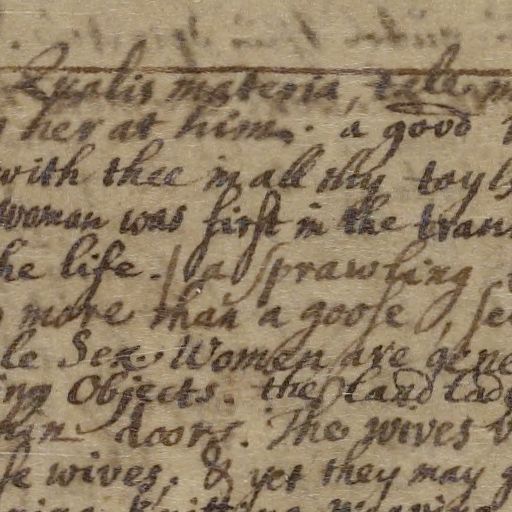 Qualis materia, tale
her at him. a good
with thee in all thy toyl
Woman was first in the tran
he life. / a sprawling
more than a goose, se
le Sex. Women are gene
ing Objects. the land lad
hin doors. The wives
se wives, & yet they may